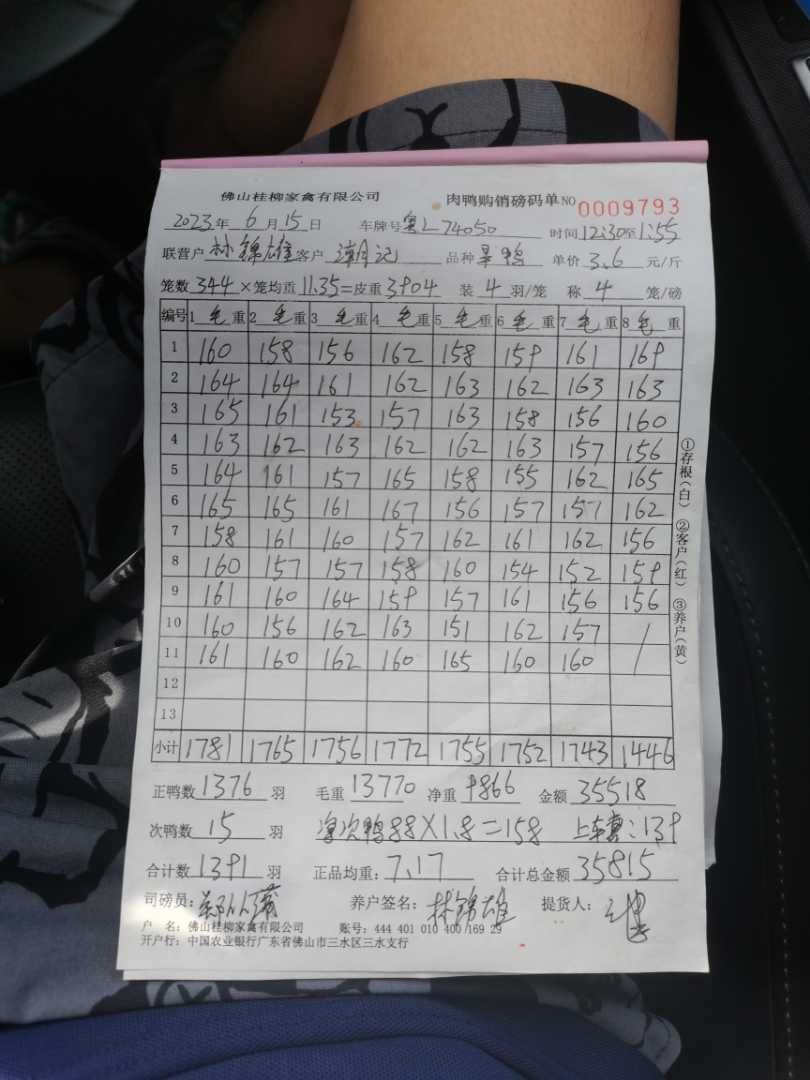 佛山桂柳家禽有限公司 肉鸭购销磅码单 NO 0009793
2023年 6月 15日 车牌号 粤L 74050 时间 12:30至1:55
联营户 林锦雄 客户 品种 单价 3.6 元/斤
笼数 344 ×笼均重 11.35 =皮重 3904 装 4 羽/笼 称 4 笼/磅
编号 1 毛重 2 毛重 3 毛重 4 毛重 5 毛重 6 毛重 7 毛重 8 毛重
1 160 158 156 162 158 159 161 169
2 164 164 161 162 163 162 163 163
3 165 161 153 157 163 158 156 160
4 163 162 163 162 162 163 157 156
5 164 161 157 165 158 155 162 165
6 165 165 161 167 156 157 157 162
7 158 161 160 157 162 161 162 156
8 160 157 157 158 160 154 152 159
9 161 160 164 159 157 161 156 156
10 160 156 162 163 151 162 157 /
11 161 160 162 160 165 160 160 /
12
13
小计 1781 1765 1756 1772 1755 1752 1743 1446
正鸭数 1376 羽 毛重 13770 净重 9866 金额 35518
次鸭数 15 羽 次鸭 88×1.8=158 上车费:139
合计数 1391 羽 正品均重: 7.17 合计总金额 35815
司磅员: 养户签名: 林锦雄 提货人:
户 名: 佛山桂柳家禽有限公司 账号: 444 401 010 400 /169 29
开户行: 中国农业银行广东省佛山市三水区三水支行
①存根(白) ②客户(红) ③养户(黄)